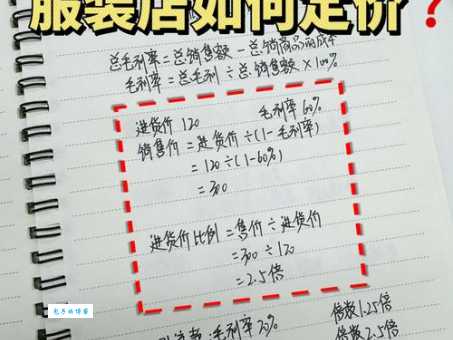 服装店如何定价？
总毛利率=总销售额-总销商品的成本
毛利率=总毛利÷总销售额×100%
进货价 120 毛利率60%
销售价=进货价÷(1-毛利率)
=120÷(1-60%)
=300
进货价比例=售价÷进货价
=300÷120
=2.5倍
毛利率20% 倍数1.25倍
倍数2.5倍